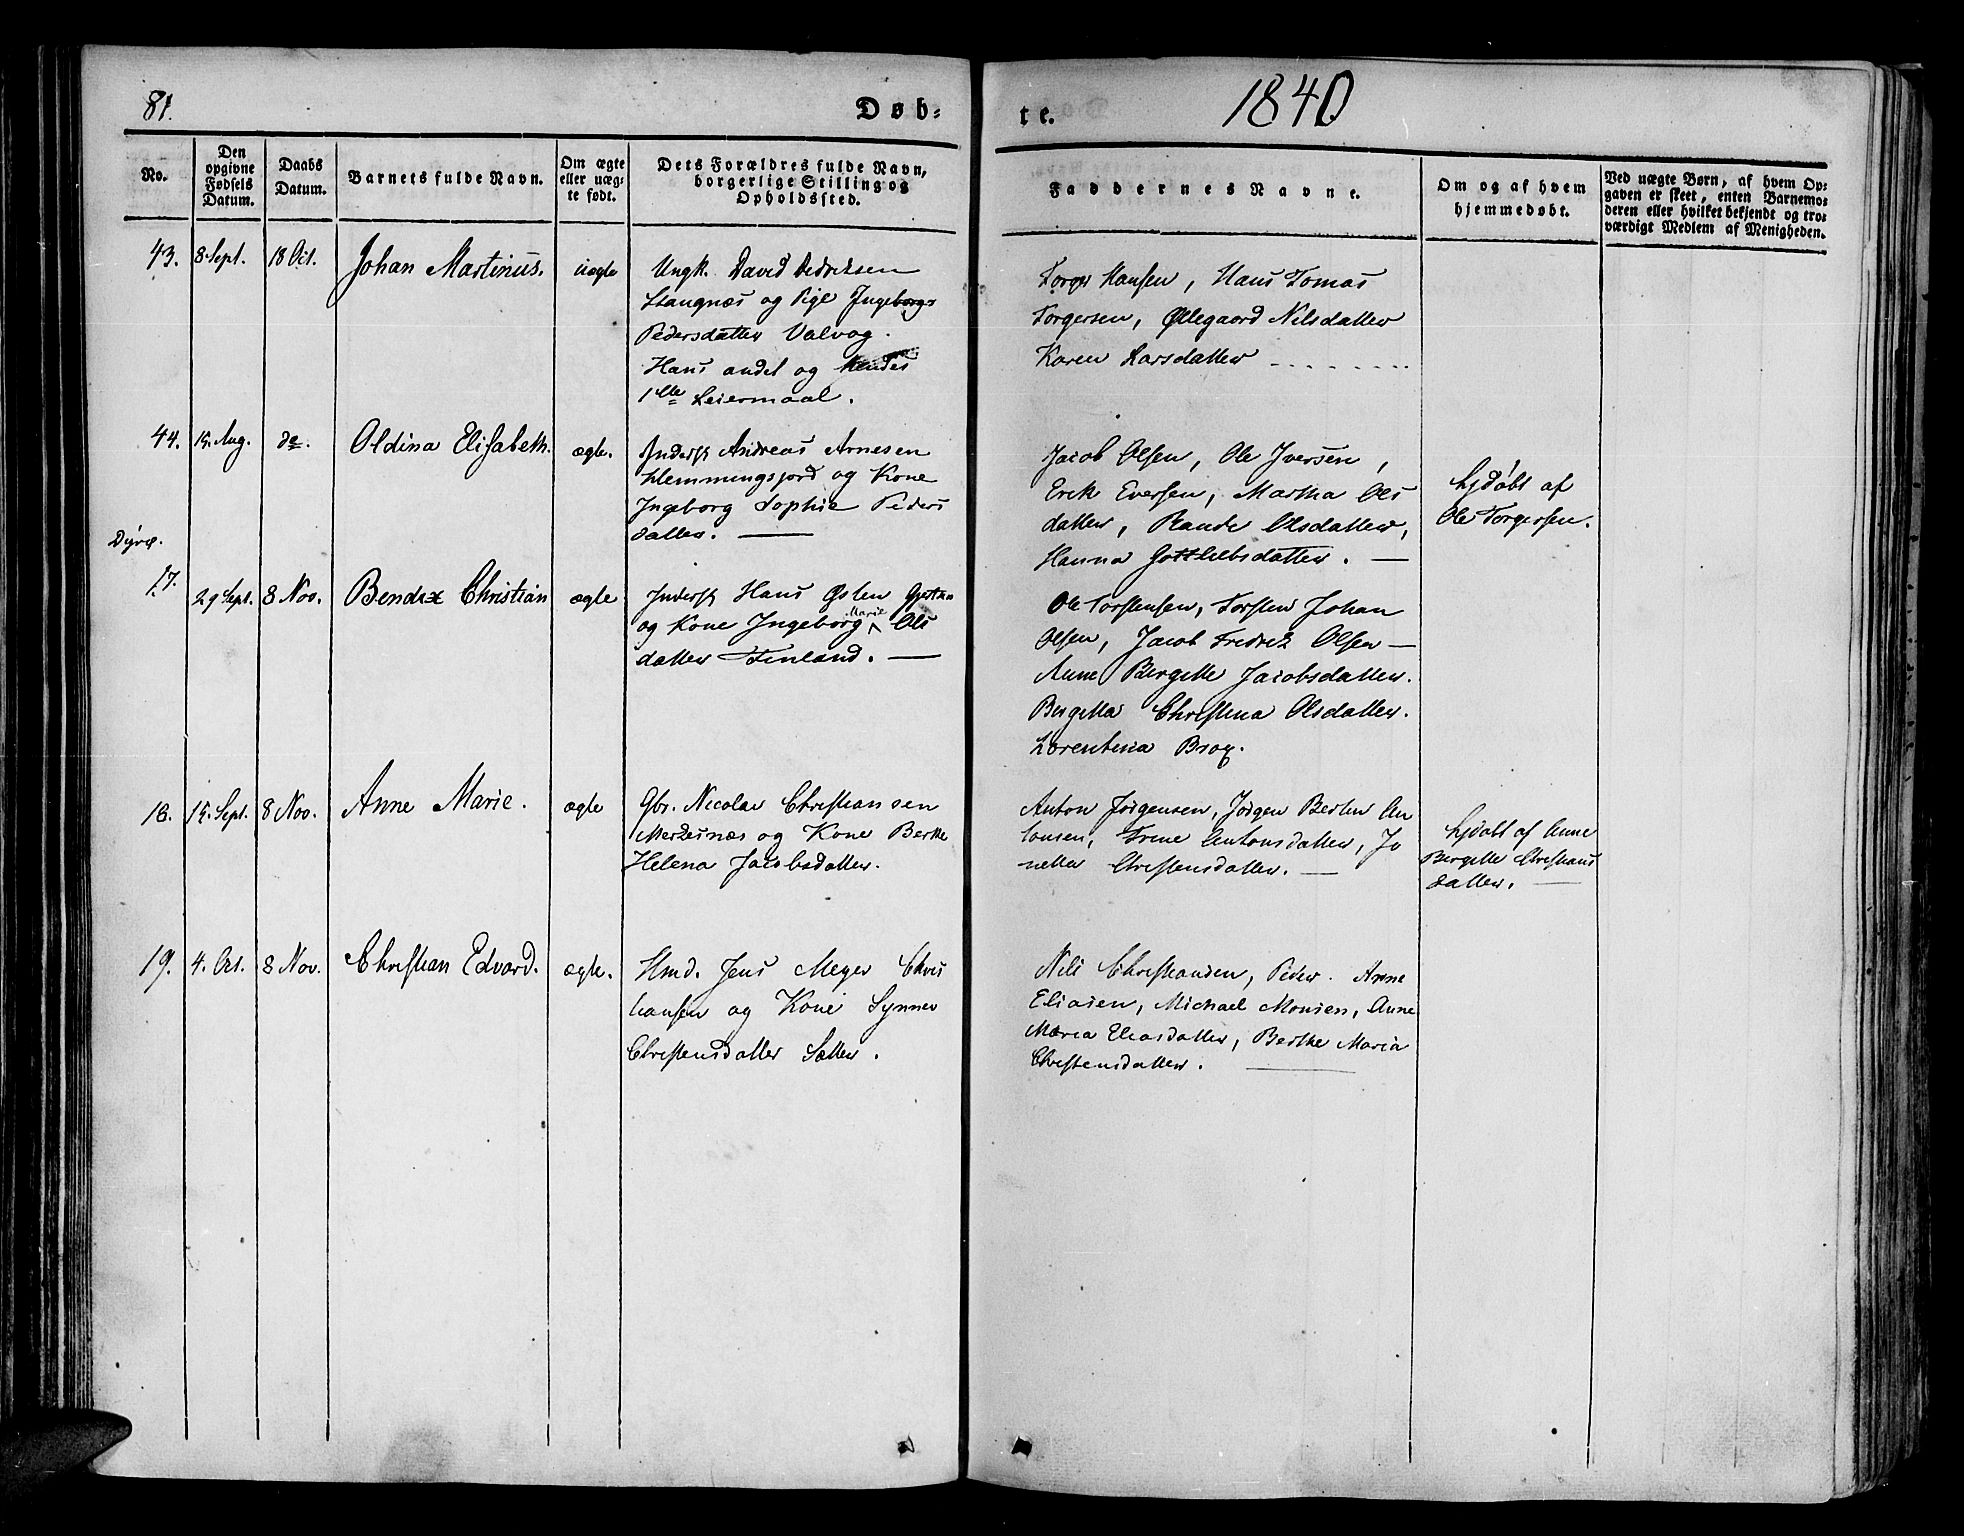 81.
Døb-
te.
1840
No.
Den
opgivne
Fødsels
Datum.
Daabs
Datum.
Barnets fulde Navn.
Om ægte
eller uæg-
te født.
Dets Forældres fulde Navn,
borgerlige Stilling og
Opholdssted.
Faddernes Navne.
Om og af hvem
hjemmedøbt.
Ved uægte Børn, af hvem Op-
gaven er skeet, enten Barnemo-
deren eller hvilket bekjendt og tro-
værdigt Medlem af Menigheden.
43. 8 Sept. 18 Oct. Johan Martinus. uægte
Ungk. David Dedriksen
Stangnæs og Pige Ingeborg
Pedersdatter Valvog.
Hans andet og Hendes
1ste Leiermaal.
Torger Hansen, Hans Tomas
Torgersen, Øllegaard Nilsdatter
Karen Larsdatter
44. 15. Aug. do. Oldina Elisabeth. ægte.
Inderst Andreas Arnesen
Lemmingsjord og Kone
Ingeborg Sophie Peders
datter. —
Jacob Olsen, Ole Iversen,
Erik Eversen, Martha Ols
datter, Rande Olsdatter,
Hanna Gottliebsdatter. —
hjdøbt af
Ole Torgersen.
Dyrø.
17. 29 Sept. 8 Nov. Bendix Christian ægte
Inderst Hans Oslen
og Kone Ingeborg Marie Ols
datter Finland. —
Ole Torstensen, Torsten Johan
Olsen, Jacob Fredrik Olsen —
Anne Bergitte Jacobsdatter.
Bergitta Christina Olsdatter.
Lorentina Brox.
18. 15. Sept. 8 Nov. Anne Marie. ægte
Gbr. Nicolai Christiansen
Merkesnæs og Kone Berthe
Helena Jacobsdatter.
Anton Jörgensen, Jörgen Bertin An
tonsen, Trine Antonsdatter, Jo
nette Christensdatter. —
hjdøbt af Anne
Bergitte Christians
datter. —
19. 4. Oct. 8 Nov. Christian Edvard. ægte.
Hmd. Jens Meyer Chris
tiansen og Kone Synnev
Christensdatter Sætter.
Nils Christiansen, Peder Arne
Eliasen, Michael Monsen, Anne
Maria Eliasdatter, Berthe Maria
Christensdatter. —